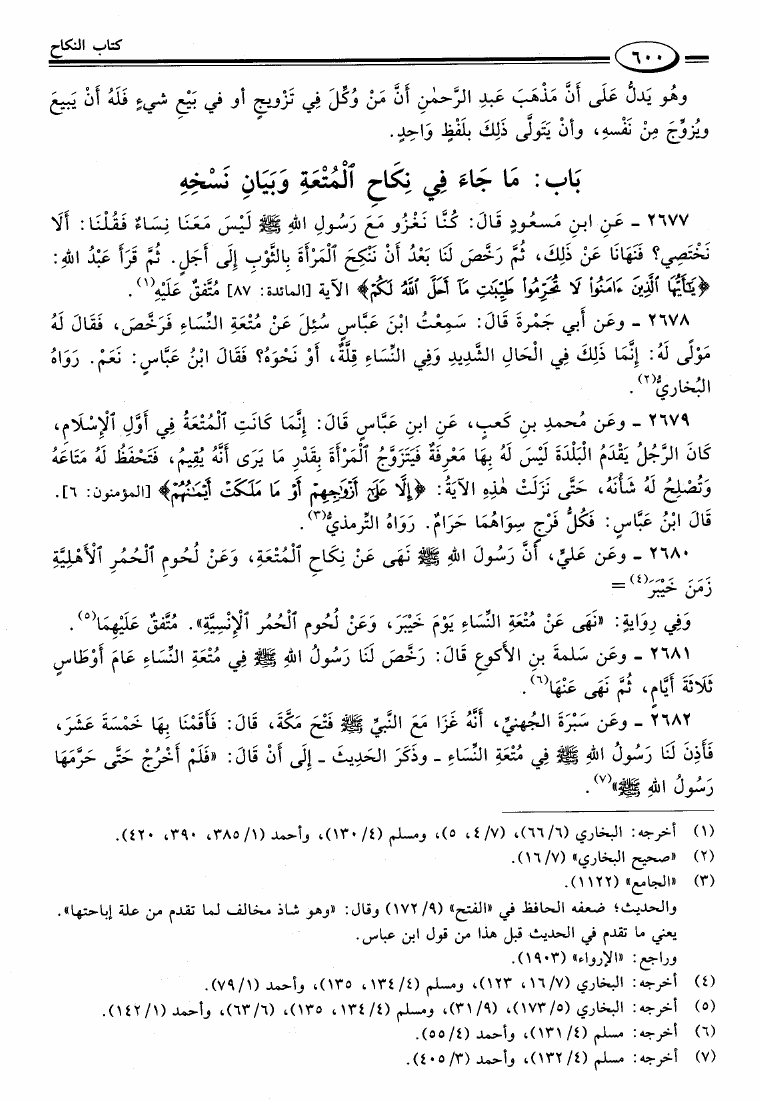 كتاب النكاح
٦٠٠
وهُو يَدلُّ عَلَى أنَّ مَذْهَبَ عَبدِ الرَّحمٰنِ أنَّ مَنْ وُكِّلَ فِي تَزْويجٍ أو في بَيْعِ شيءٍ فَلَهُ أنْ يَبيعَ
ويُزوِّجَ مِنْ نَفْسِهِ، وأنْ يَتولَّى ذَلِكَ بلَفْظٍ وَاحِدٍ.
بَاب: مَا جَاءَ فِي نِكَاحِ ٱلْمُتْعَةِ وَبَيَانِ نَسْخِهِ
٢٦٧٧ ـ عَنِ ابنِ مَسعُودٍ قَالَ: كُنَّا نَغْزُو مَعَ رَسُولِ اللهِ ﷺ لَيْسَ مَعَنَا نِسَاءٌ فَقُلْنَا: أَلَا
نَخْتَصِي؟ فَنَهَانَا عَنْ ذَلِكَ، ثُمَّ رَخَّصَ لَنَا بَعْدُ أَنْ نَنْكِحَ ٱلْمَرْأَةَ بِالثَّوْبِ إِلَى أَجَلٍ. ثُمَّ قَرَأَ عَبْدُ اللهِ:
﴿يَٰٓأَيُّهَا ٱلَّذِينَ ءَامَنُواْ لَا تُحَرِّمُواْ طَيِّبَٰتِ مَآ أَحَلَّ ٱللَّهُ لَكُمْ﴾ الآية [المائدة: ٨٧] مُتَّفقٌ عَلَيْهِ(١).
٢٦٧٨ ـ وعَن أبي جَمْرةَ قَالَ: سَمِعْتُ ابْنَ عَبَّاسٍ سُئِلَ عَنْ مُتْعَةِ النِّسَاءِ فَرَخَّصَ، فَقَالَ لَهُ
مَوْلًى لَهُ: إِنَّمَا ذَلِكَ فِي الْحَالِ الشَّدِيدِ وَفِي النِّسَاءِ قِلَّةٌ، أَوْ نَحْوَهُ؟ فَقَالَ ابْنُ عَبَّاسٍ: نَعَمْ. رَوَاهُ
البُخاريُّ(٢).
٢٦٧٩ ـ وعَن مُحمدِ بنِ كَعبٍ، عَنِ ابنِ عَبَّاسٍ قَالَ: إِنَّمَا كَانَتِ ٱلْمُتْعَةُ فِي أَوَّلِ ٱلْإِسْلَامِ،
كَانَ الرَّجُلُ يَقْدَمُ الْبَلْدَةَ لَيْسَ لَهُ بِهَا مَعْرِفَةٌ فَيَتَزَوَّجُ ٱلْمَرْأَةَ بِقَدْرِ مَا يَرَى أَنَّهُ يُقِيمُ، فَتَحْفَظُ لَهُ مَتَاعَهُ
وَتُصْلِحُ لَهُ شَأْنَهُ، حَتَّى نَزَلَتْ هٰذِهِ الآيَةُ: ﴿إِلَّا عَلَىٰٓ أَزْوَٰجِهِمْ أَوْ مَا مَلَكَتْ أَيْمَٰنُهُمْ﴾ [المؤمنون: ٦].
قَالَ ابْنُ عَبَّاسٍ: فَكُلُّ فَرْجٍ سِوَاهُمَا حَرَامٌ. رَوَاهُ التِّرمذيُّ(٣).
٢٦٨٠ ـ وعَن عَليٍّ، أَنَّ رَسُولَ اللهِ ﷺ نَهَى عَنْ نِكَاحِ ٱلْمُتْعَةِ، وَعَنْ لُحُومِ ٱلْحُمُرِ ٱلْأَهْلِيَّةِ
زَمَنَ خَيْبَرَ(٤)=
وَفِي رِوَايَةٍ: «نَهَى عَنْ مُتْعَةِ النِّسَاءِ يَوْمَ خَيْبَرَ، وَعَنْ لُحُومِ ٱلْحُمُرِ ٱلْإِنْسِيَّةِ». مُتَّفقٌ عَلَيْهِمَا(٥).
٢٦٨١ ـ وعَن سَلمةَ بنِ الأكوعِ قَالَ: رَخَّصَ لَنَا رَسُولُ اللهِ ﷺ فِي مُتْعَةِ النِّسَاءِ عَامَ أَوْطَاسٍ
ثَلَاثَةَ أَيَّامٍ، ثُمَّ نَهَى عَنْهَا(٦).
٢٦٨٢ ـ وعَن سَبْرَةَ الجُهنيِّ، أَنَّهُ غَزَا مَعَ النَّبيِّ ﷺ فَتْحَ مَكَّةَ، قَالَ: فَأَقَمْنَا بِهَا خَمْسَةَ عَشَرَ،
فَأَذِنَ لَنَا رَسُولُ اللهِ ﷺ فِي مُتْعَةِ النِّسَاءِ ـ وذَكَرَ الحَديثَ ـ إِلَى أَنْ قَالَ: «فَلَمْ أَخْرُجْ حَتَّى حَرَّمَهَا
رَسُولُ اللهِ ﷺ»(٧).
(١) أخرجه: البخاري (٦/ ٦٦)، (٧/ ٤، ٥)، ومسلم (٤/ ١٣٠)، وأحمد (١/ ٣٨٥، ٣٩٠، ٤٢٠).
(٢) «صحيح البخاري» (٧/ ١٦).
(٣) «الجامع» (١١٢٢).
والحديث؛ ضعفه الحافظ في «الفتح» (٩/ ١٧٢) وقال: «وهو شاذ مخالف لما تقدم من علة إباحتها».
يعني ما تقدم في الحديث قبل هذا من قول ابن عباس.
وراجع: «الإرواء» (١٩٠٣).
(٤) أخرجه: البخاري (٧/ ١٦، ١٢٣)، ومسلم (٤/ ١٣٤، ١٣٥)، وأحمد (١/ ٧٩).
(٥) أخرجه: البخاري (٥/ ١٧٣)، (٩/ ٣١)، ومسلم (٤/ ١٣٤، ١٣٥)، (٦/ ٦٣)، وأحمد (١/ ١٤٢).
(٦) أخرجه: مسلم (٤/ ١٣١)، وأحمد (٤/ ٥٥).
(٧) أخرجه: مسلم (٤/ ١٣٢)، وأحمد (٣/ ٤٠٥).